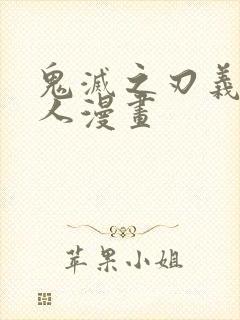 鬼滅之刃義
人漫畫
苹果小姐